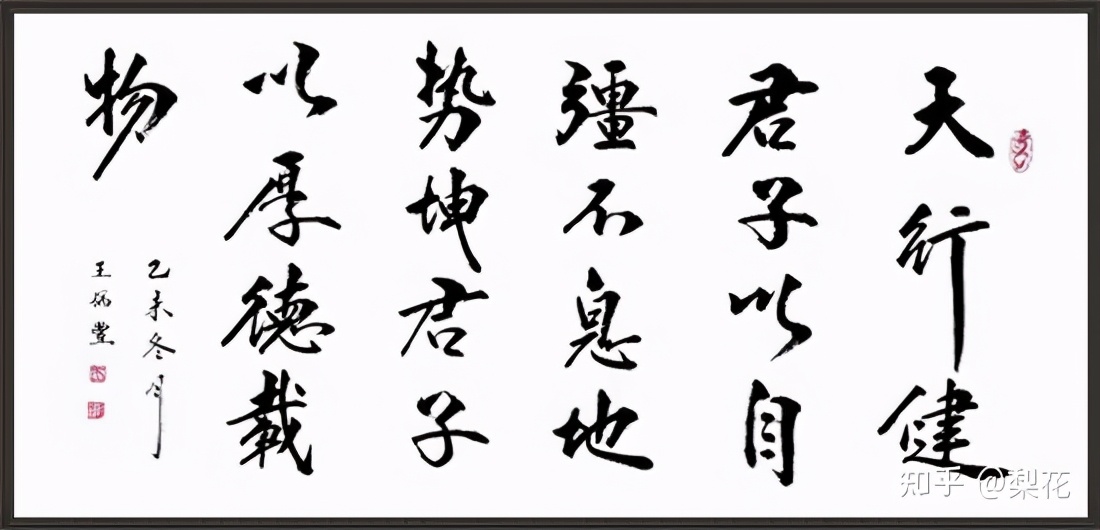 天行健
君子以自
彊不息地
势坤君子
以厚德載
物
乙未冬月
王炳堂
知乎 @梨花